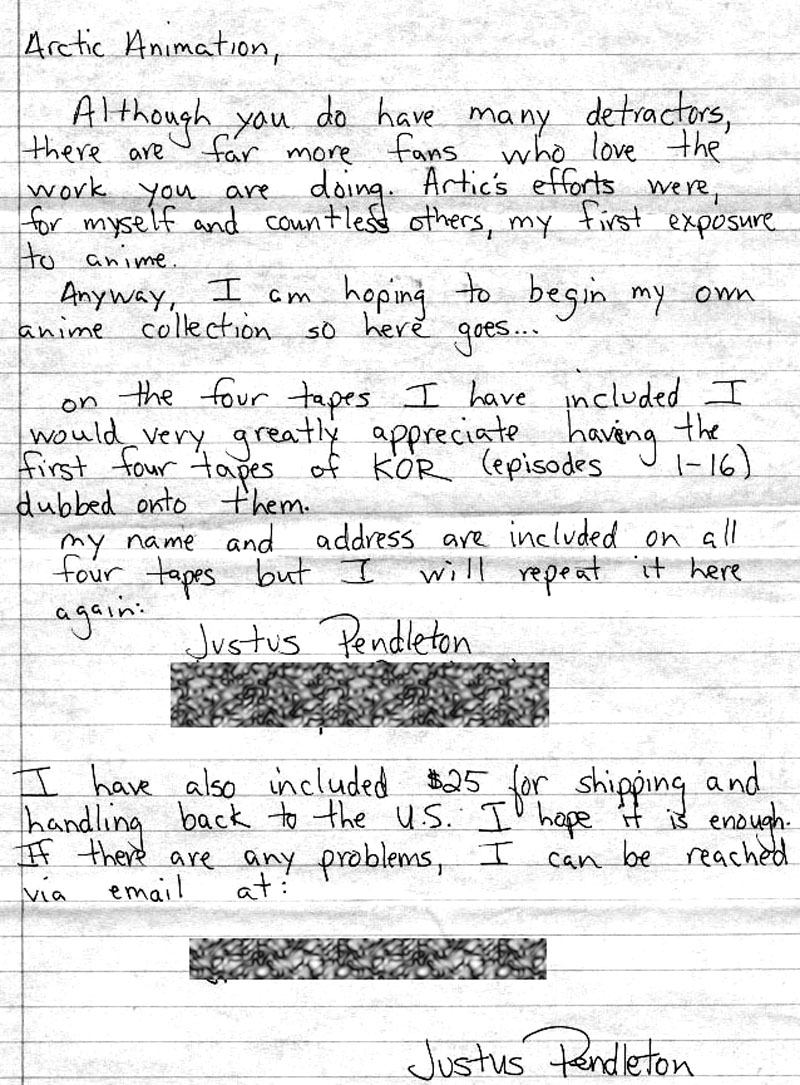 Arctic Animation,
Although you do have many detractors,
there are far more fans who love the
work you are doing. Artic's efforts were,
for myself and countless others, my first exposure
to anime.
Anyway, I am hoping to begin my own
anime collection so here goes...
on the four tapes I have included I
would very greatly appreciate having the
first four tapes of KOR (episodes 1-16)
dubbed onto them.
my name and address are included on all
four tapes but I will repeat it here
again:
Justus Pendleton
I have also included $25 for shipping and
handling back to the U.S. I hope it is enough.
If there are any problems, I can be reached
via email at:
Justus Pendleton